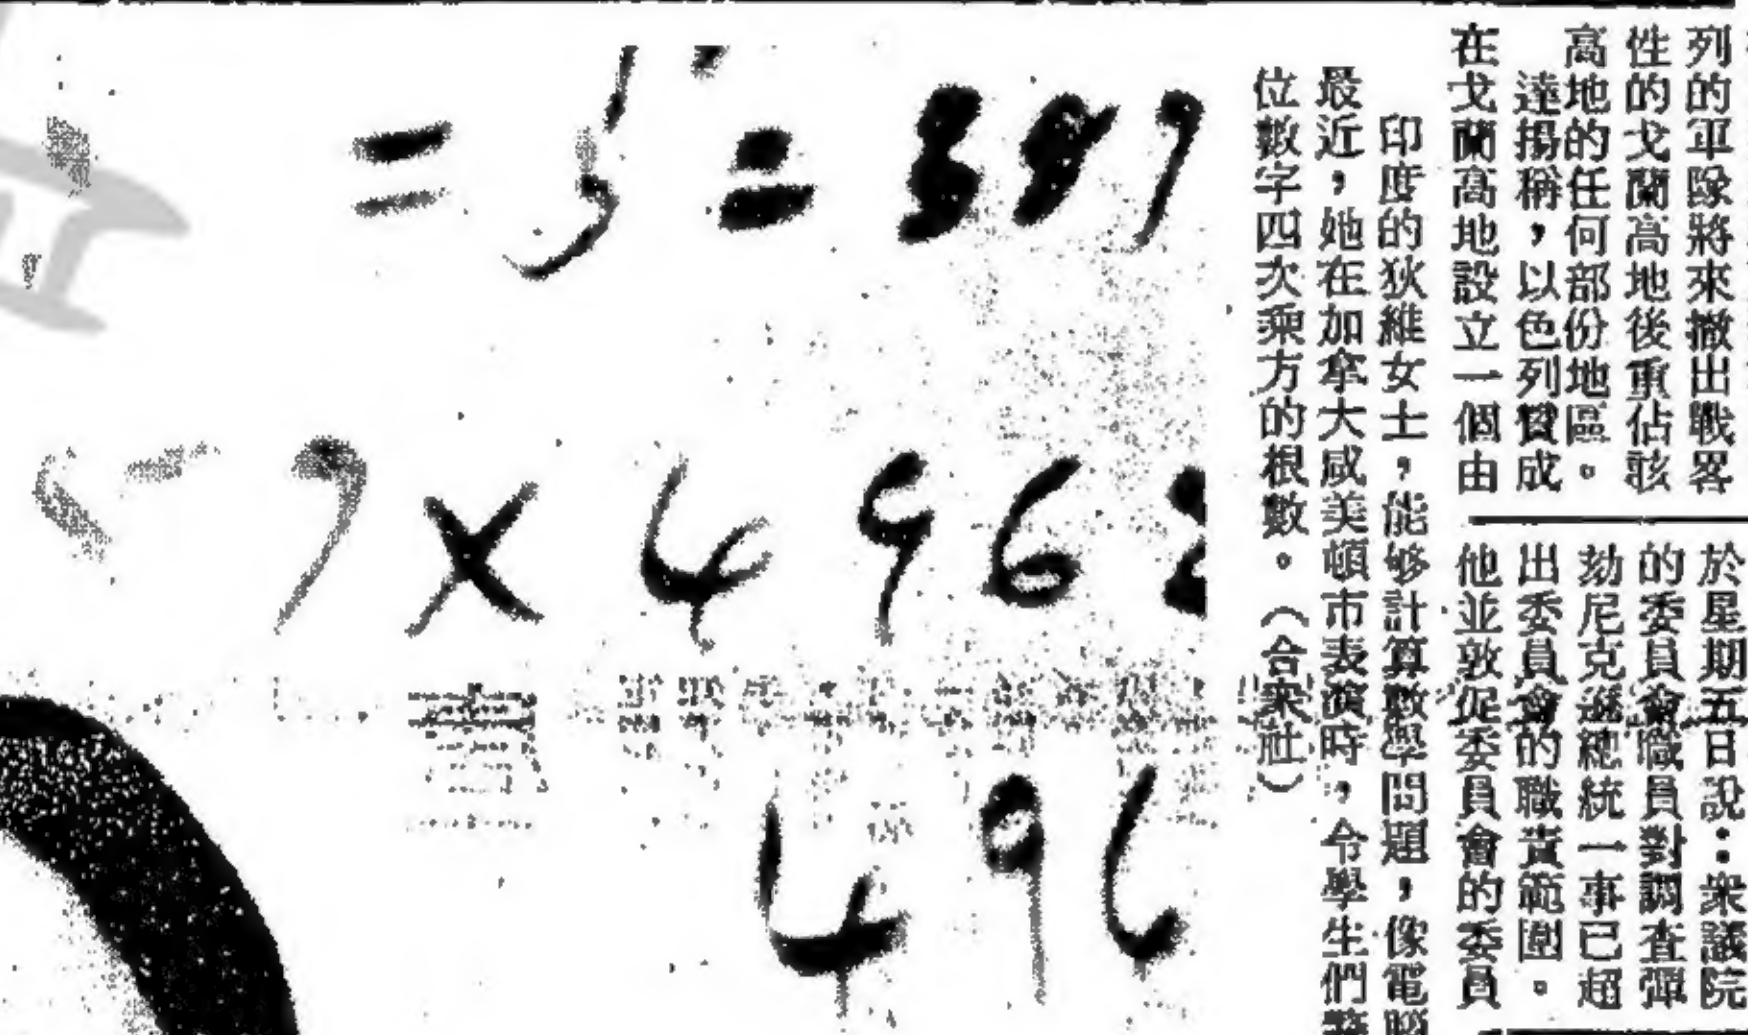 列的軍隊將來撤出戰畧
性的戈蘭高地後重佔該
高地的任何部份地區。
達揚稱，以色列贊成
在戈蘭高地設立一個由
於星期五日說：衆議院
的委員會職員對調查彈
劾尼克遜總統一事已超
出委員會的職責範圍。
他並敦促委員會的委員
印度的狄維女士，能够計算數學問題，像電腦
最近，她在加拿大咸美頓市表演時，令學生們
位數字四次乘方的根數。（合衆社）
9 × 4 9 6
4 9 6